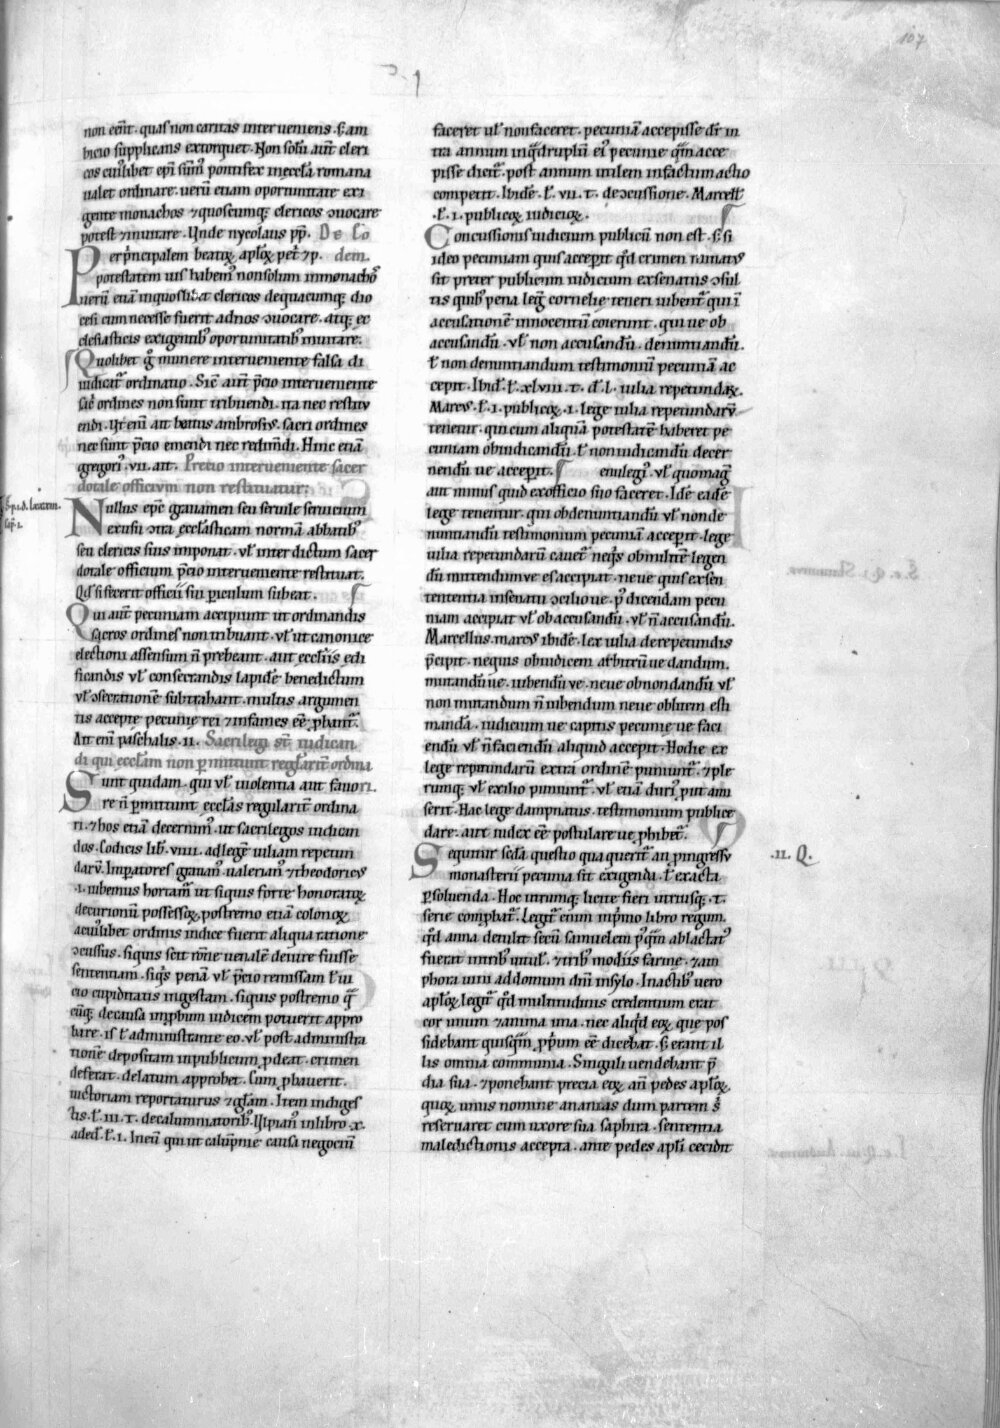 107
non eēnt . quas non caritas interueniens . s; am
bicio supplicans extorquet . Non solū aut̄ cleri
cos cui᷒libet ep̄i sūm᷒ pontifex in eccl̄a romana
ualet ordinare . uerū etiam oportunitate exi
gente monachos ⁊ quoscumq; clericos ꝯuocare
potest ⁊ mutare . Unde nycolaus pp̄ . De eo
Per prīncipalem beatoꝝ ap̄loꝝ petri ⁊ p. dem .
potestatem ius habem᷒ non solum in monachos
uerū etiā in quoslibet clericos de quacumq; dio
cesi cum necesse fuerit ad nos ꝯuocare . atq; ec
clesiasticis exigentib᷒ oportunitatib᷒ mutare .
Quolibet g̊ munere interueniente falsa di
iudicat᷑ ordinatio . Sic̄ aut̄ p̄cio interueniente
sac̄ ordines non sunt tribuendi . ita nec restitu
endi . Ut eni᷒ ait beatus ambrosius . sacri ordines
nec sunt p̄cio emendi nec redim̄di . Hinc etiā
gregori᷒ . vii . ait . Precio interueniente sacer
dotale officium non restituatur .
Nullus ep̄c grauamen seu seruile seruicium
ex usu ꝯtra eccl̄asticam normā abbatib᷒
seu clericis suis imponat . vl̄ interdictum sacer
dotale officium p̄cio interueniente restituat .
Qd̄ si fecerit officii sui ꝑiculum subeat .
Qui aut̄ pecuniam accipiunt ut ordinandis
sacros ordines non tribuant . vl̄ ut canonice
electioni assensum n̄ prebeant . aut eccl̄iis edi
ficandis vl̄ consecrandis lapidē benedictum
vl̄ ꝯsecrationē subtrahant . multis argumen
tis accepte pecunie rei ⁊ infames eē ꝓbant᷑ .
Ait eni᷒ paschalis . ii . Sacrilegi st̄ iudican
di qui eccl̄am non ꝑmittunt regl̄arit̄ ordina
Sunt quidam . qui vl̄ uiolentia aut fauo ri .
re n̄ ꝑmittunt eccl̄as regularit̄ ordina
ri . ⁊ hos etiā decernim᷒ . ut sacrilegos iudican
dos . Codicis lib̄ . viiii . ad legē iuliam repetun
darū . Imperatores gratian᷒ ualerian᷒ ⁊ theodorici᷒
. i . iubemus hortam᷑ ut siquis forte honoratoꝝ
decurionū possessoꝝ . postremo etiā colonoꝝ
a cui᷒libet ordinis iudice fuerit aliqua ratione
ꝯcussus . siquis scit rōne uenalē de iure fuisse
sententiam . siq᷒s penā vl̄ p̄cio remissam ł ui
cio cupiditatis ingestam . siquis postremo q̄
cūq; de causa inꝓbum iudicem potuerit appro
bare . is ł administrante eo . vl̄ post administra
tionē depositam in publicum ꝓdeat . crimen
deferat . delatum approbet . Cum ꝓbauerit .
uictoriam reportaturus ⁊ gl̄am . Item in diges
tis . ł . iii . t . de calumniatorib᷒ . Ulpian᷒ in libro . x .
ad ed̄ . ł . i . In eum qui ut calūpnie causa negociū
S. i. d. lxxxviii.
cap. i.
faceret ul̄ non faceret . pecuniā accepisse dr̄ in
tra annum in q̄druplū ei᷒ pecunie q̄m acce
pisse dicit᷑ . post annum utilem in factum actio
competit . Ibidē . ł . vii . t . de ꝯcussione . Marcell᷒
. ł . i . publicoꝝ iudicioꝝ .
Concussionis iudicium publicū non est . s; si
ideo pecuniam quis accepit qd̄ crimen minatus
sit preter publicum iudicium ex senatus ꝯsul
tis quib᷒ pena leg̃ cornelie teneri iubent᷑ qui ī
accusationē innocentū coierunt . qui ue ob
accusandū . vl̄ non accusandū . denuntiandū .
ł non denuntiandum testimoniū pecuniā ac
cepit . Ibid̄ . ł . xlviii . t . d̄ . l . iulia repetundaꝝ .
Marcus . ł . i . publicoꝝ . i . lege iulia repetundarū
tenetur . qui cum aliquā potestatē haberet pe
cuniam ob iudicandū . ł non iudicandū decer
nendū ue acceperit . enilegi᷒ . vl̄ quo mag᷒
aut minus quid ex officio suo faceret . Idē eadē
lege tenentur . qui ob denuntiandū vl̄ non de
nuntiandū testimonium pecuniā acceperit . lege
iulia repetundarū cauet᷑ neq᷒s ob militē legen
dū mittendum ue es accipiat . neue quis ex sen
tentia in senatu ꝯcilio ue . ꝓ dicendam pecu
niam accipiat vl̄ ob accusandū . vl̄ n̄ accusandū .
Marcellus . marcus ibidē . lex iulia de repetundis
p̄cipit . ne quis ob iudicem arbitrū ue dandum .
mutandū ue . iubendū ue . neue ob non dandū vl̄
non mutandum n̄ iubendum neue ob litem esti
mandā . iudicium ue capitis pecunie ue faci
endū vl̄ n̄ faciendū aliquid accepit . Hodie ex
lege repetundarū extra ordinē puniunt᷑ . ⁊ ple
rumq; vl̄ exilio puniunt᷑ . vl̄ etiā duri᷒ ꝓut ami
serit . Hac lege dampnatus . testimonium publice
dare . aut iudex eē postulare ue ꝓhibet᷑ .
Sequitur sc̄da questio qua querit᷑ an ꝓ ingressu
monasterii pecunia sit exigenda . ł exacta
ꝑsoluenda . Hoc utrumq; licite fieri utriusq; . t .
serie comꝓbat᷑ . Legit᷑ enim in p̄mo libro regum .
qd̄ anna detulit secū samuelem p᷒q̄m ablactat᷒
fuerit in trib᷒ uitul᷒ . ⁊ trib᷒ modiis farine . ⁊ am
phora uini ad domum dn̄i in sylo . In actib᷒ uero
ap̄loꝝ legit᷑ qd̄ multitudinis credentium erat
cor unum ⁊ anima una . nec aliq̄d eoꝝ que pos
sidebant quisq̄m ꝓpriū eē dicebat . s; erant il
lis omnia communia . Singuli uendebant p̄
dia sua . ⁊ ponebant precia eoꝝ an̄ pedes ap̄loꝝ .
quoꝝ unus nomine ananias dum partem s᷒
reseruaret cum uxore sua saphira . sententia
maledictionis accepta . ante pedes ap̄li cecidit
. ii . Q .